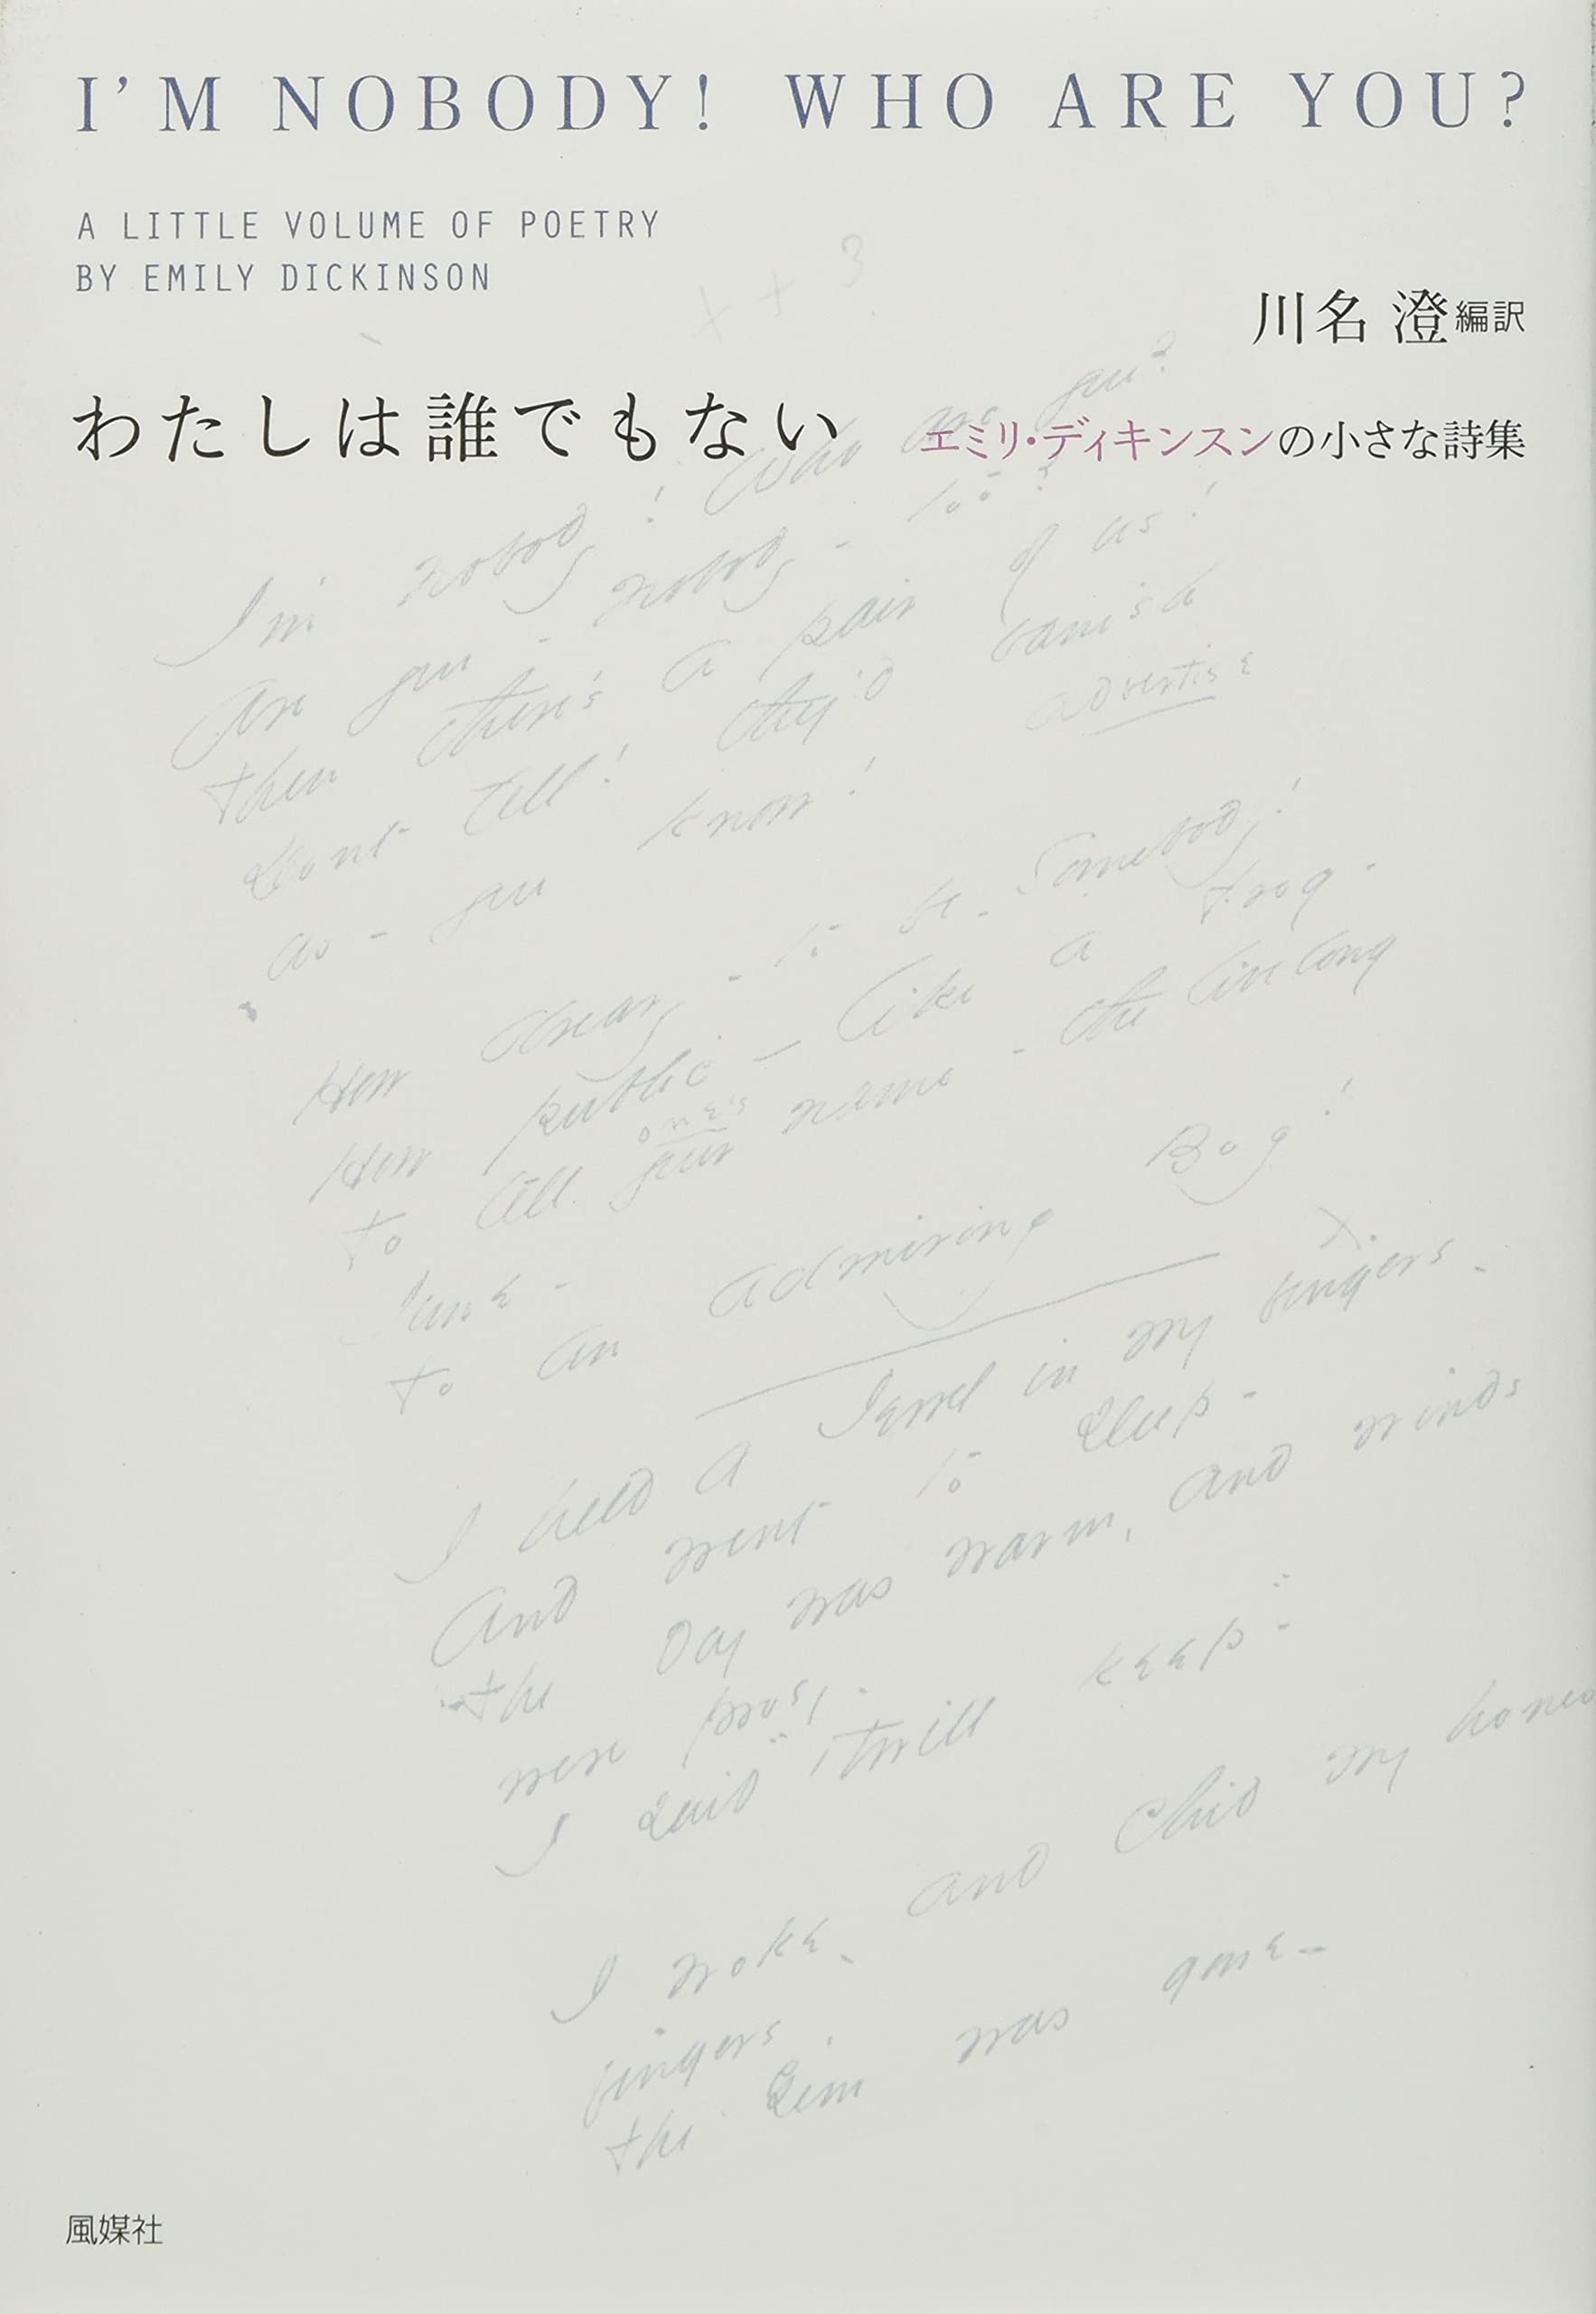 I'M NOBODY! WHO ARE YOU?
A LITTLE VOLUME OF POETRY
BY EMILY DICKINSON
川名 澄編訳
わたしは誰でもない
エミリ・ディキンスンの小さな詩集
x + 3
I'm nobody! Who are you?
Are you - nobody - too?
Then there's a pair of us!
Dont tell! they'd banish
advertise
us - you know!
How dreary - to be - Somebody!
How public - like a frog -
one's
To tell your name - the livelong
June -
To an admiring Bog!
x
I held a Jewel in my fingers -
And went to sleep -
The day was warm, and winds
were prosy -
I said "'Twill keep" -
I woke - and chid my honest
fingers,
The Gem was gone -
風媒社